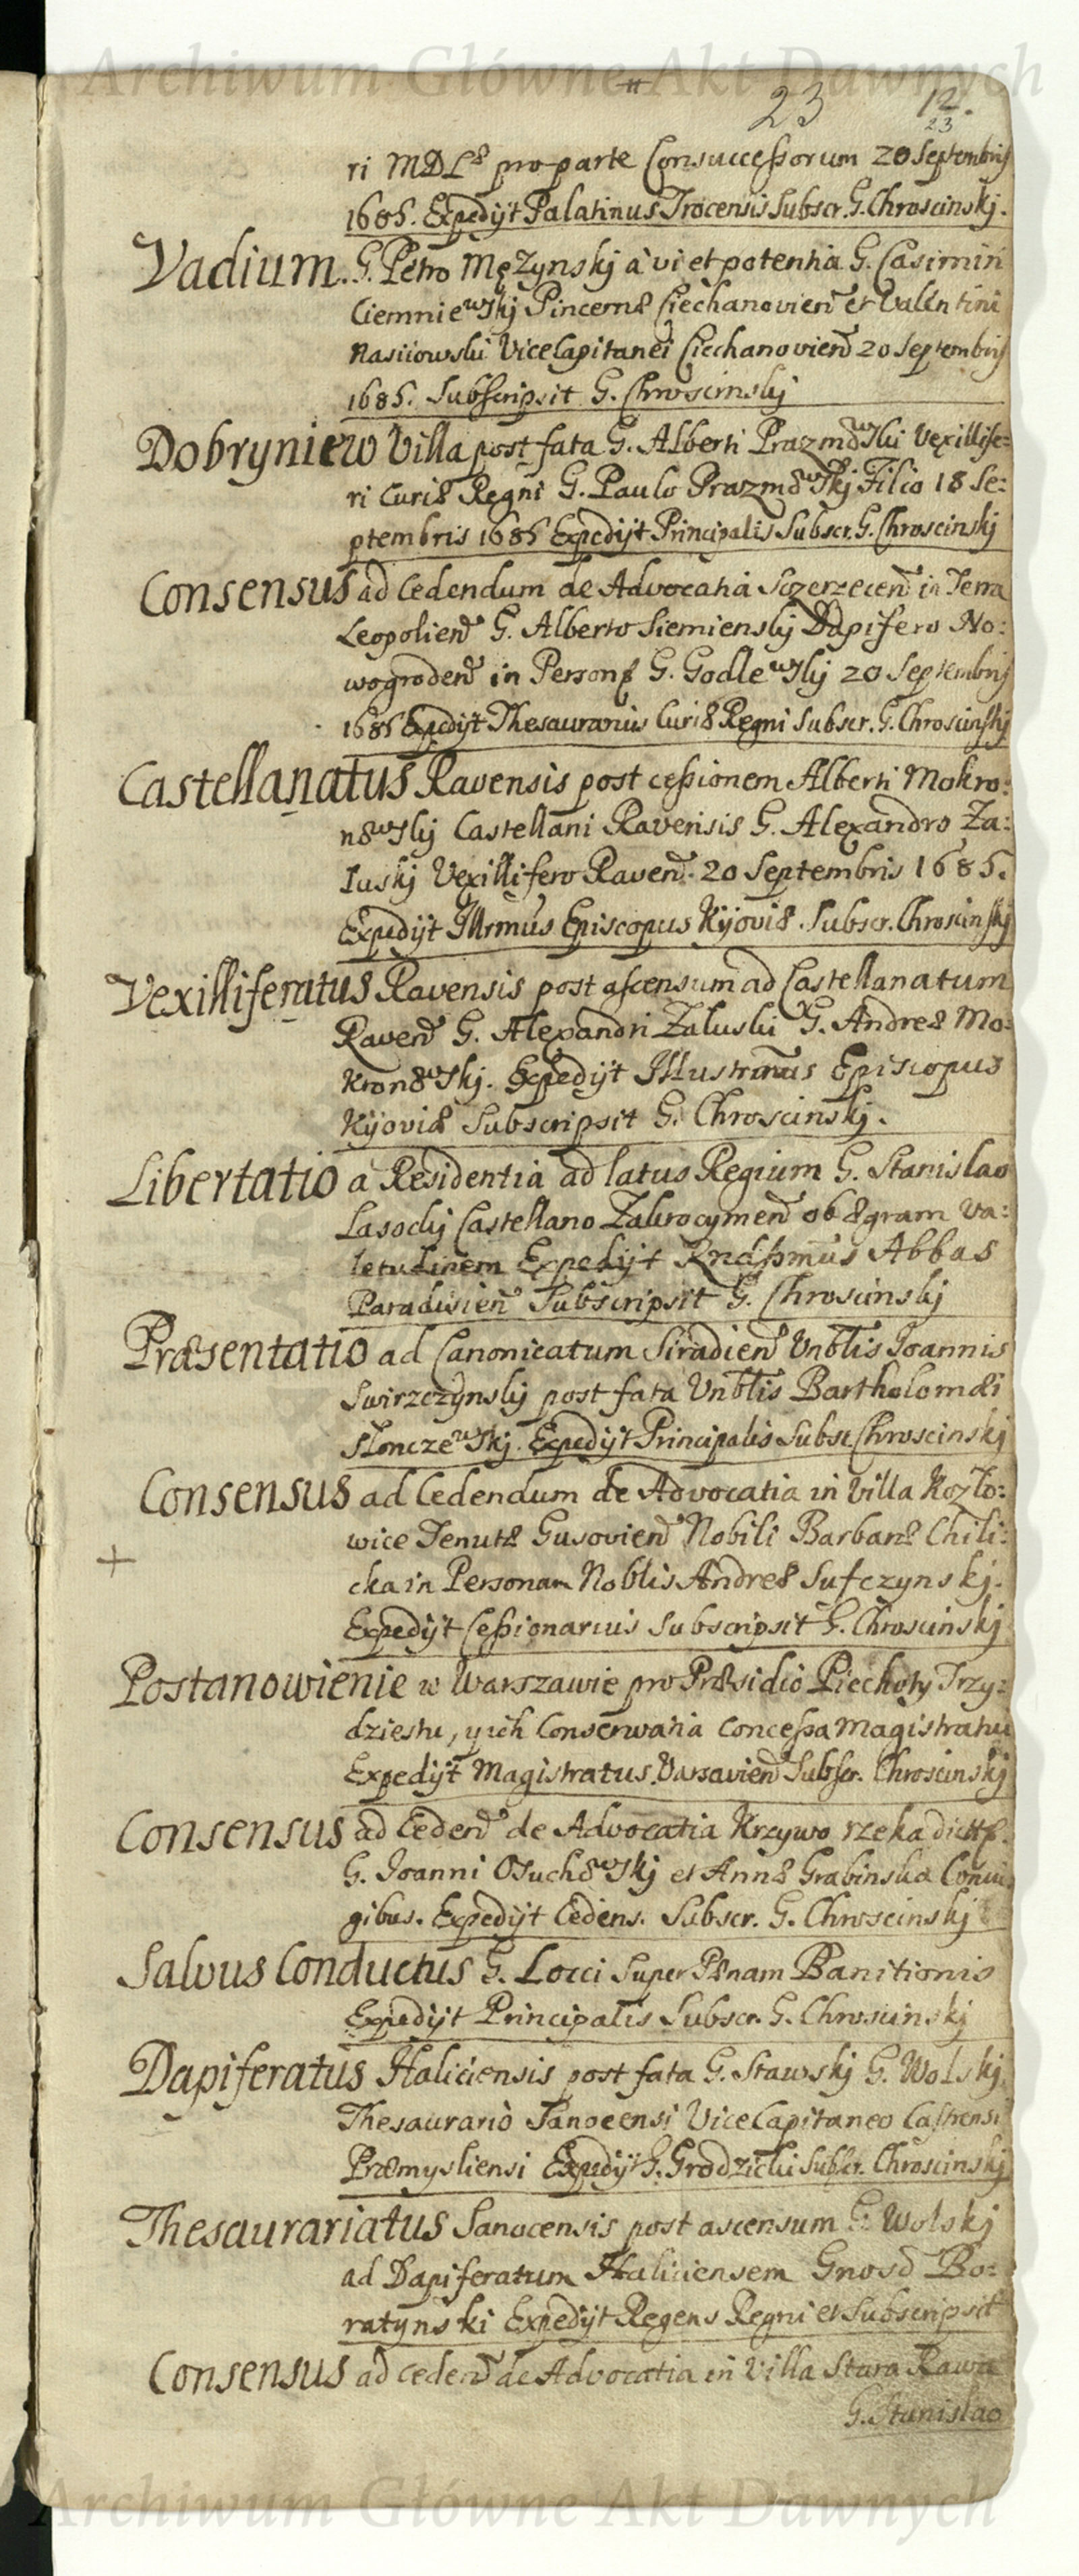 Archiwum Główne Akt Dawnych
23 12.
23
ri MDLæ pro parte Consuccessorum 20 Septembris
1685. Expedijt Palatinus Trocensis Subscr. G. Chroscinskj.
Vadium. G. Petro Mężynskj à vi et potentia G. Casimiri
Ciemniewskj Pincernæ Ciechanovien̄ et Valentini
Vicecapitanei Ciechanovien̄ 20 Septembris
1685. Subscripsit G. Chroscinskj
Dobryniew Villa post fata G. Alberti Prazmowski Vexillife=
ri Curiæ Regni G. Paulo Prazmowskj Filio 18 Se=
ptembris 1685 Expedijt Principalis Subscr. G. Chroscinskj
Consensus ad Cedendum de Advocatia Sczerzecen̄ in Terra
Leopolien̄ G. Alberto Siemienskj Dapifero No=
wogroden̄ in Personą G. Godlewskj 20 Septembris
1685 Expedijt Thesaurarius Curiæ Regni Subscr. G. Chroscinskj
Castellanatus Ravensis post cessionem Alberti Mokro=
nowskj Castellani Ravensis G. Alexandro Za=
łuskj Vexillifero Raven̄. 20 Septembris 1685.
Expedijt Illrmus Episcopus Kijoviæ. Subscr. Chroscinskj
Vexilliferatus Ravensis post ascensum ad Castellanatum
Raven̄ G. Alexandri Załuski G. Andreæ Mo=
kronowskj. Expedijt Illustrmus Episcopus
Kijoviæ Subscripsit G. Chroscinskj.
Libertatio a Residentia ad latus Regium G. Stanislao
Lasockj Castellano Zakrocymen̄ ob ægram va=
letudinem Expedijt Rndssmus Abbas
Paradisien̄ Subscripsit G. Chroscinskj
Præsentatio ad Canonicatum Siradien̄ Vnblis Joannis
Swirzczynskj post fata Vnblis Bartholomæi
Słonczewskj. Expedijt Principalis Subsc. Chroscinskj
Consensus ad Cedendum de Advocatia in Villa Kozło=
wice Tenutæ Gusovien̄ Nobili Barbaræ Chili=
cka in Personam Noblis Andreæ Sufczynskj.
Expedijt Cessionarius Subscripsit G. Chroscinskj
Postanowienie w Warszawie pro Præsidio Piechoty Trzy=
dziestu, y ich Conserwatia Concessa Magistratui
Expedijt Magistratus Varsavien̄ Subscr. Chroscinskj
Consensus ad Ceden̄ de Advocatia Krzywo rzeka
G. Joanni Osuchowskj et Annæ Grabinska Coniu
gibus. Expedijt Cedens. Subscr. G. Chroscinskj
Salvus Conductus G. Locci super Pænam Banitionis
Expedijt Principalis Subscr. G. Chroscinskj
Dapiferatus Haliciensis post fata G. Stawskj G. Wolskj
Thesaurario Sanocensi Vicecapitaneo Castrensi
Præmysliensi Expedijt G. Grodzicki Subscr. Chroscinskj
Thesaurariatus Sanocensis post ascensum G. Wolskj
ad Dapiferatum Haliciensem Gnosd Bo=
ratynski Expedijt Regens Regni et Subscripsit
Consensus ad ceden̄ de Advocatia in Villa Stara Rawa
G. Stanislao
Archiwum Główne Akt Dawnych